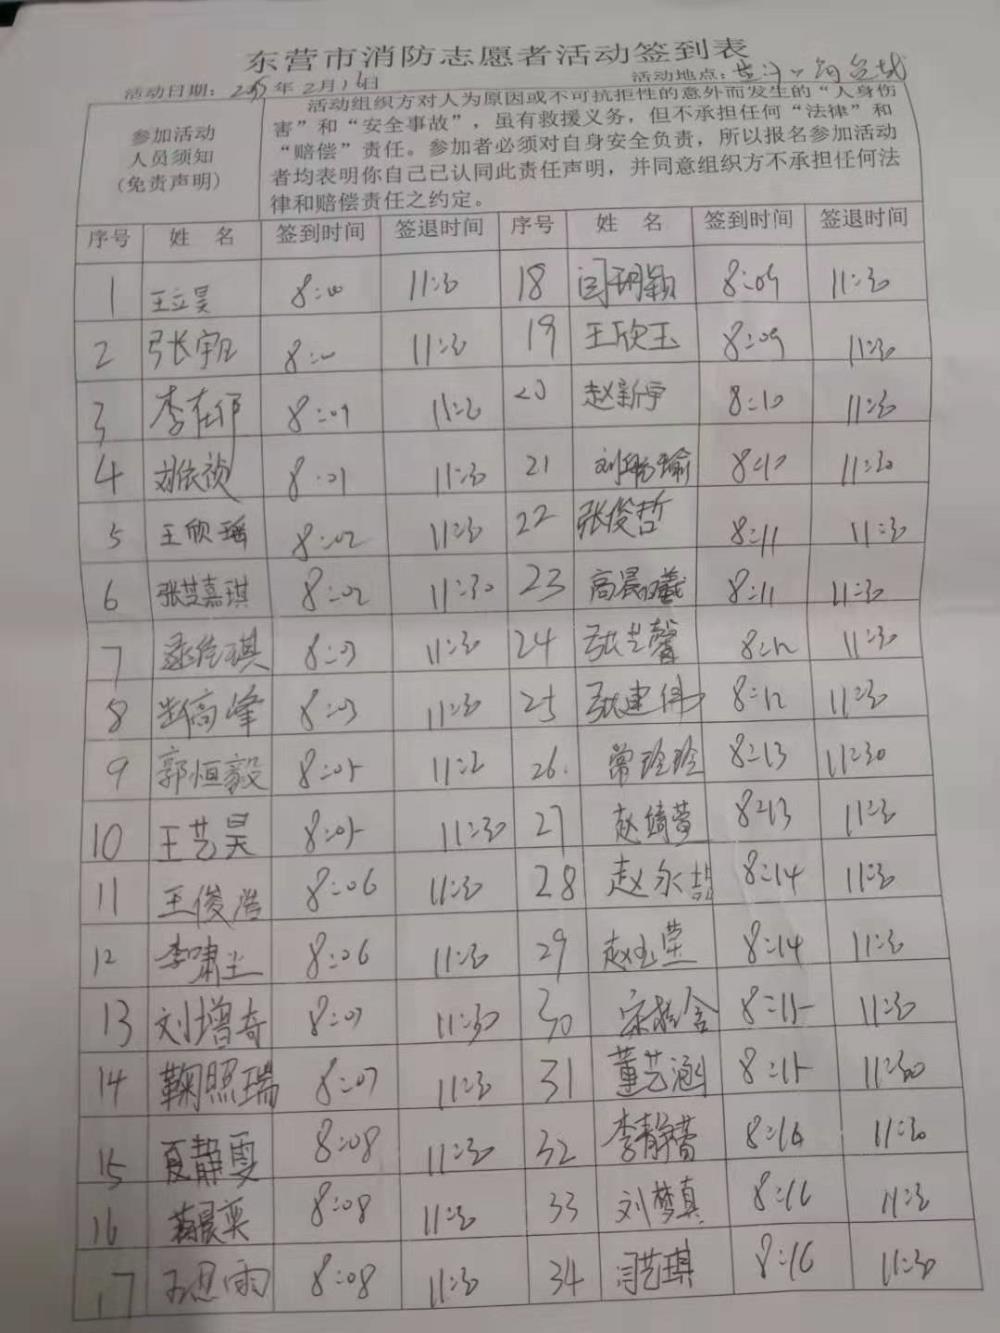 东营市消防志愿者活动签到表
活动日期： 年2月16日 活动地点：
参加活动
人员须知
(免责声明)
活动组织方对人为原因或不可抗拒性的意外而发生的“人身伤
害”和“安全事故”，虽有救援义务，但不承担任何“法律”和
“赔偿”责任。参加者必须对自身安全负责，所以报名参加活动
者均表明你自己已认同此责任声明，并同意组织方不承担任何法
律和赔偿责任之约定。
序号 姓 名 签到时间 签退时间 序号 姓 名 签到时间 签退时间
1 王立昊 8:00 11:30 18 闫玥颖 8:09 11:30
2 8:00 11:30 19 王欣玉 8:09 11:30
3 8:01 11:30 20 赵新宇 8:10 11:30
4 8:01 11:30 21 8:10 11:30
5 王欣瑶 8:02 11:30 22 张俊哲 8:11 11:30
6 张芷嘉琪 8:02 11:30 23 高晨曦 8:11 11:30
7 8:03 11:30 24 8:12 11:30
8 8:03 11:30 25 张建伟 8:12 11:30
9 郭恒毅 8:05 11:30 26. 常玲玲 8:13 11:30
10 王艺昊 8:05 11:30 27 赵绮萱 8:13 11:30
11 王俊浩 8:06 11:30 28 赵永喆 8:14 11:30
12 李啸尘 8:06 11:30 29 赵玉荣 8:14 11:30
13 刘增奇 8:07 11:30 30 8:15 11:30
14 鞠照瑞 8:07 11:30 31 董艺涵 8:15 11:30
15 夏静雯 8:08 11:30 32 李静萱 8:16 11:30
16 8:08 11:30 33 刘梦真 8:16 11:30
17 8:08 11:30 34 闫艺琪 8:16 11:30